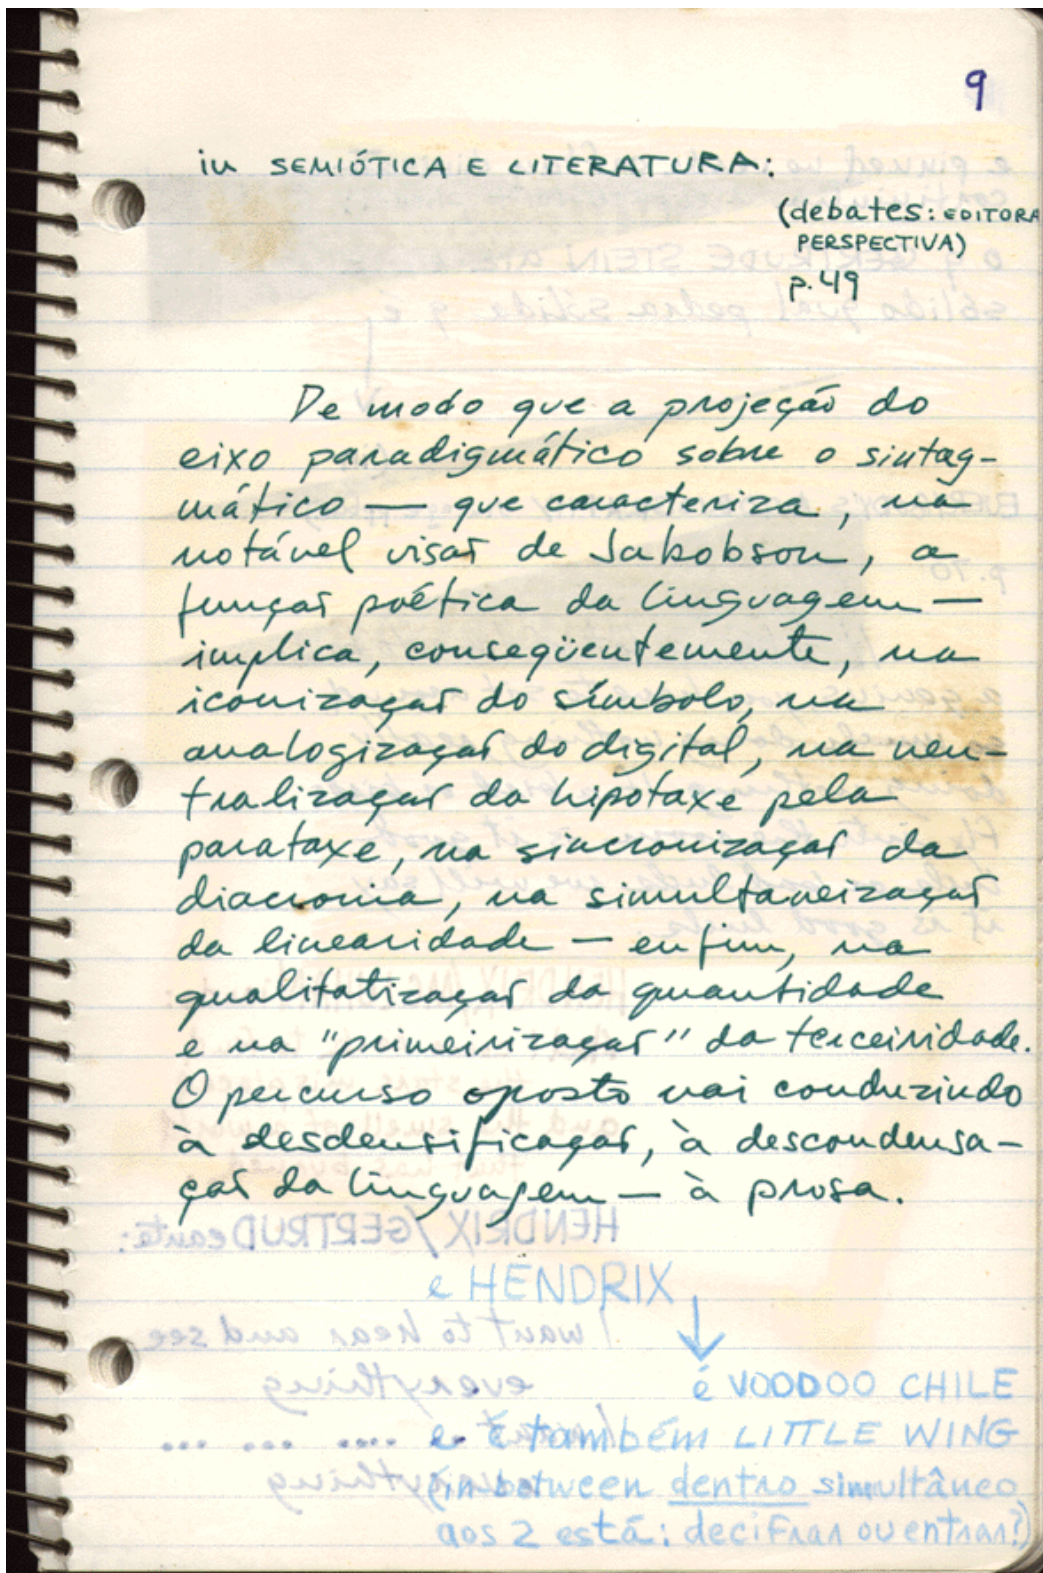 9
in SEMIÓTICA E LITERATURA:
(debates: EDITORA
PERSPECTIVA)
p.49
De modo que a projeção do
eixo paradigmático sobre o sintag-
mático — que caracteriza, na
notável visão de Jakobson, a
função poética da linguagem —
implica, conseqüentemente, na
iconização do símbolo, na
analogização do digital, na neu-
tralização da hipotaxe pela
parataxe, na sincronização da
diacronia, na simultaneização
da linearidade — enfim, na
qualitatização da quantidade
e na "primeirização" da terceiridade.
O percurso oposto vai conduzindo
à desdensificação, à descondensa-
ção da linguagem — à prosa.
e HENDRIX
é VOODOO CHILE
e é também LITTLE WING
in between dentro simultâneo
aos 2 está: decifrar ou entrar?)